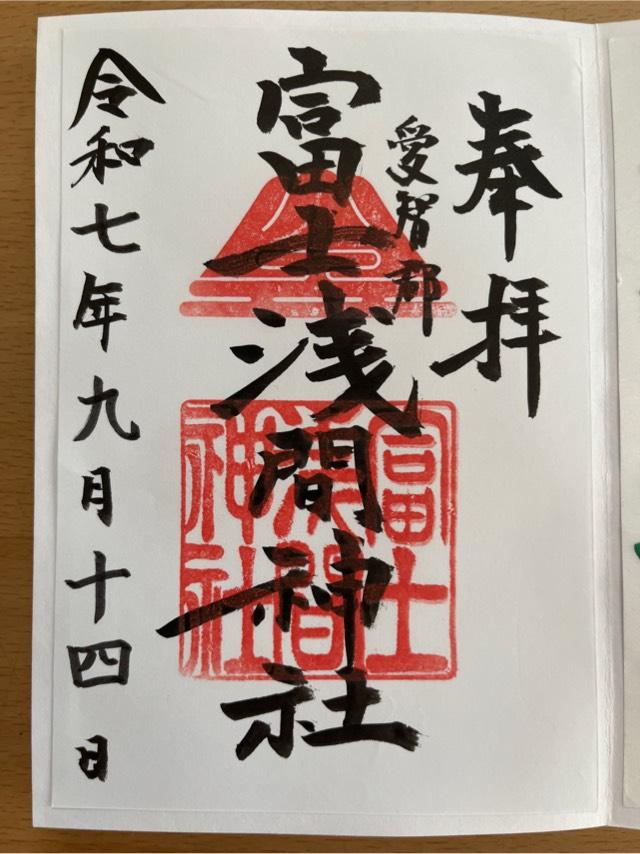 奉拝
愛智郡
冨士浅間神社
冨士
浅間
神社
令和七年九月十四日